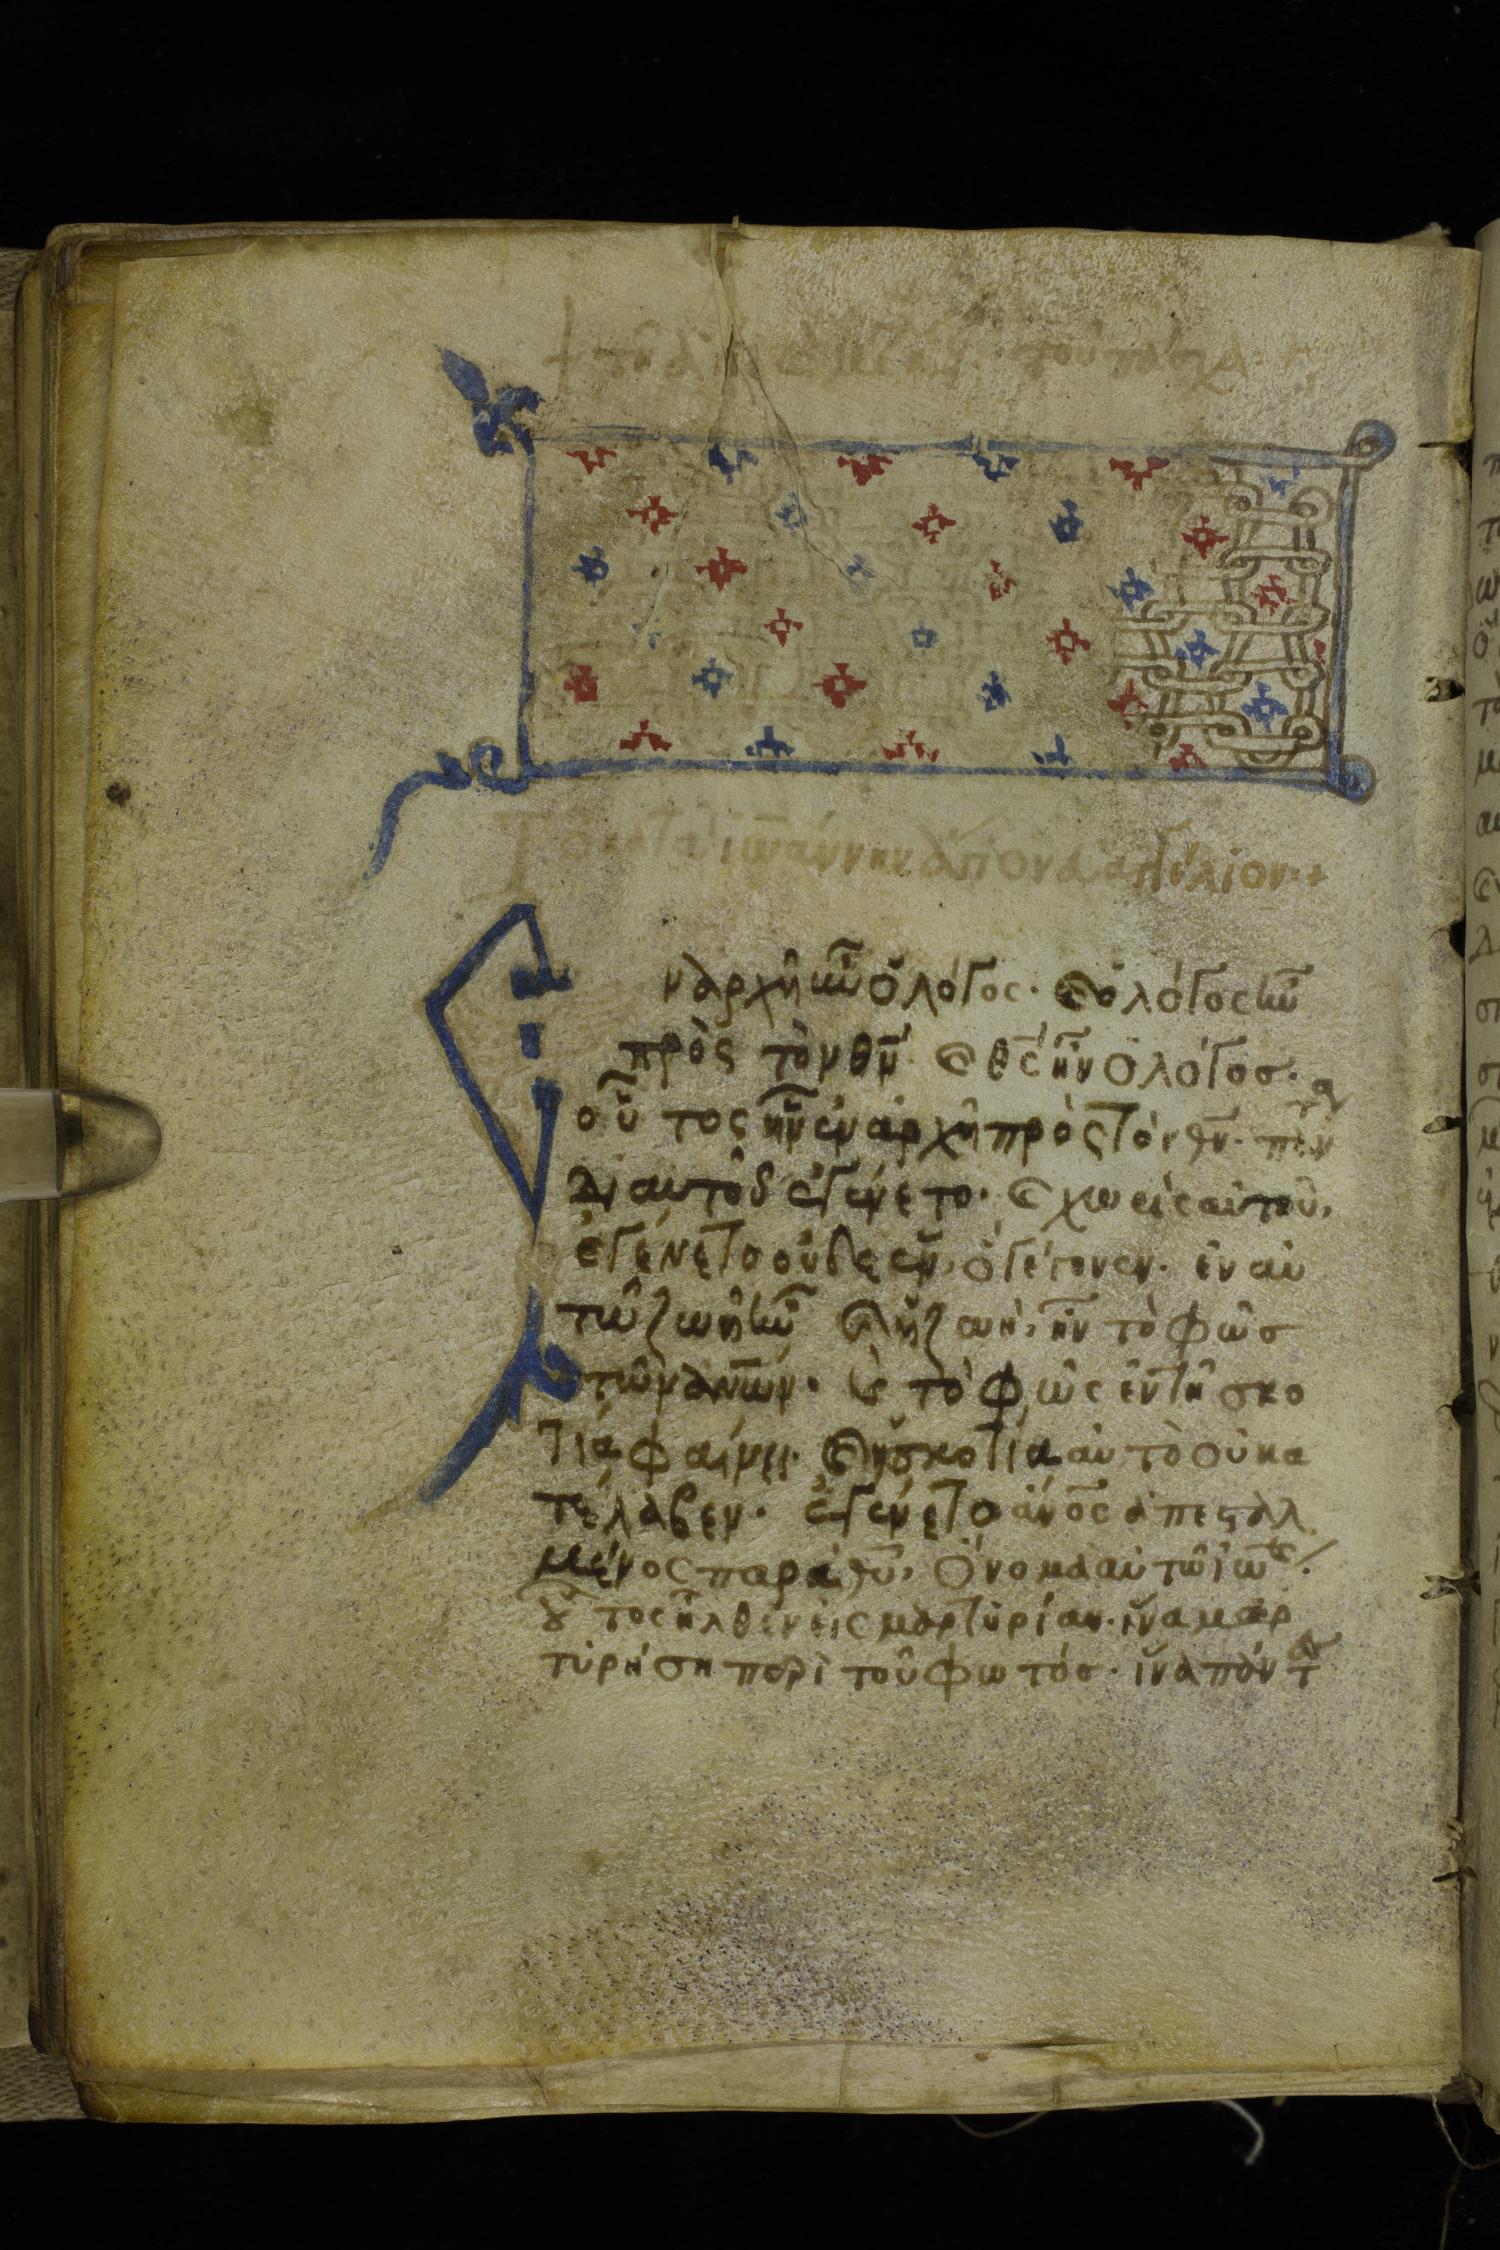 Το κατὰ ἰωάννην ἅγιον εὐαγγέλιον·+
Ἐν ἀρχῆ ἦν ὁ λόγος· (καὶ) ὁ λόγος ἦν
πρὸς τὸν θν̄· (καὶ) θς̄ ἦν ὁ λόγοσ·
οὗτος ἦν ἐν ἀρχῆ πρὸς τὸν θν̄· πάντα
δι αυτοῦ ἐγένετο· (καὶ) χωρὶς αὐτοῦ,
ἐγένετο οὐδὲ ἕν, ὃ γέγονεν· ἐν αὐ
τῶ ζωὴ ἦν (καὶ) ἡ ζωὴ, ἦν τὸ φῶσ
τῶν ἀν̄ων· (καὶ) τὸ φῶς ἐν τῆ σκο
τία φαίνει· (καὶ) ἡ σκοτία αὐτὸ οὐ κα
τέλαβεν· ἐγένετο ἀν̄ος ἀπεσταλ
μένος παρὰ θῡ, ὄνομα αὐτῶ ἰω̄·
οὗτος ἦλθεν εἰς μαρτυρίαν· ἵνα μαρ
τυρήση περὶ τοῦ φωτόσ· ἵνα πάντ